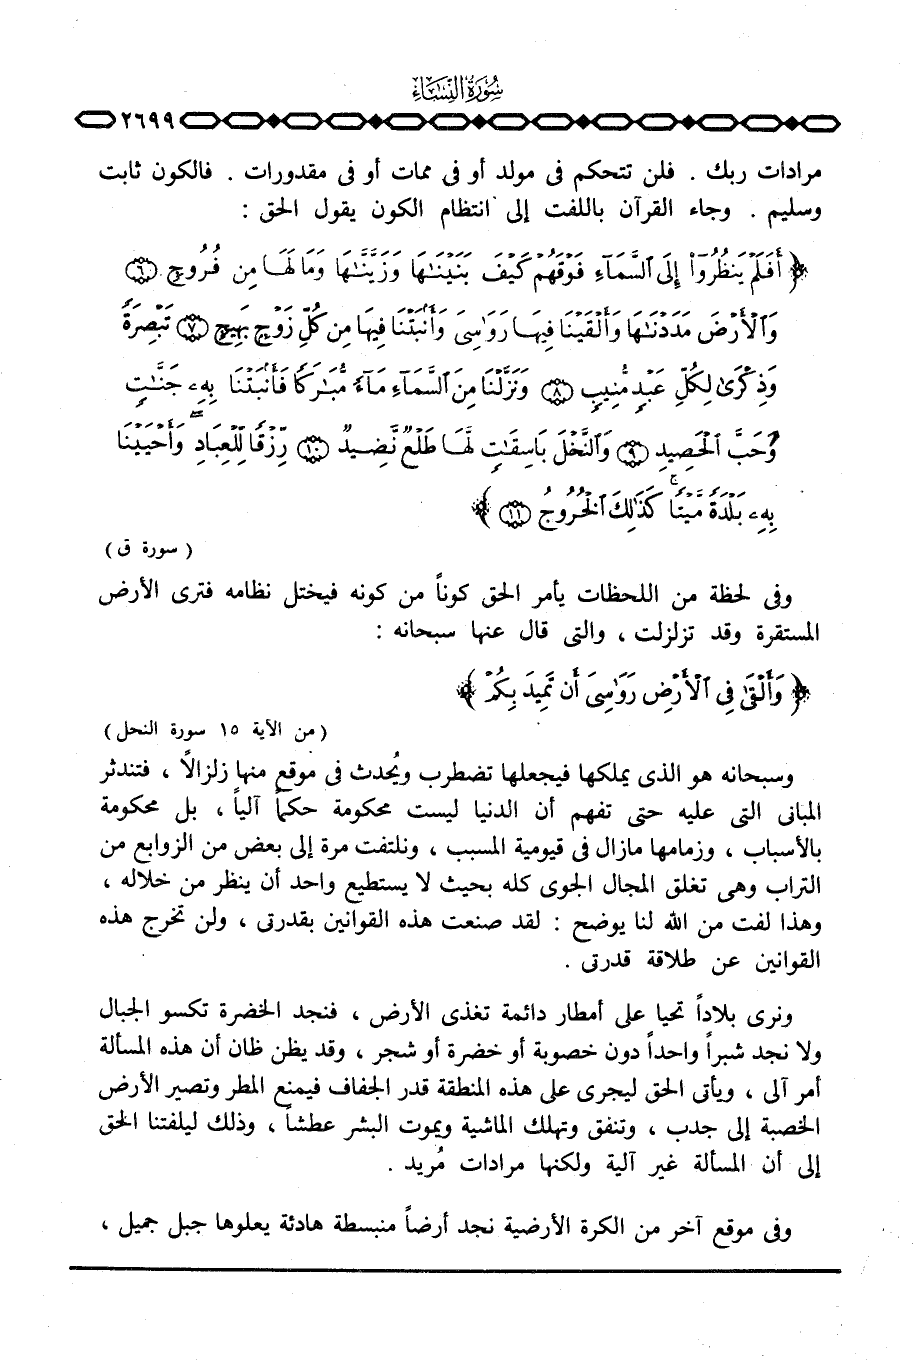 سُورَةُ النِّسَاءِ
٢٦٩٩
مرادات ربك . فلن تتحكم فى مولد أو فى ممات أو فى مقدورات . فالكون ثابت
وسليم . وجاء القرآن باللفت إلى انتظام الكون يقول الحق :
﴿ أَفَلَمْ يَنظُرُوٓا۟ إِلَى ٱلسَّمَآءِ فَوْقَهُمْ كَيْفَ بَنَيْنَـٰهَا وَزَيَّنَّـٰهَا وَمَا لَهَا مِن فُرُوجٍ ۝٦
وَٱلْأَرْضَ مَدَدْنَـٰهَا وَأَلْقَيْنَا فِيهَا رَوَٰسِىَ وَأَنۢبَتْنَا فِيهَا مِن كُلِّ زَوْجٍۭ بَهِيجٍ ۝٧ تَبْصِرَةً
وَذِكْرَىٰ لِكُلِّ عَبْدٍ مُّنِيبٍ ۝٨ وَنَزَّلْنَا مِنَ ٱلسَّمَآءِ مَآءً مُّبَـٰرَكًا فَأَنۢبَتْنَا بِهِۦ جَنَّـٰتٍ
وَحَبَّ ٱلْحَصِيدِ ۝٩ وَٱلنَّخْلَ بَاسِقَـٰتٍ لَّهَا طَلْعٌ نَّضِيدٌ ۝١٠ رِّزْقًا لِّلْعِبَادِ ۖ وَأَحْيَيْنَا
بِهِۦ بَلْدَةً مَّيْتًا ۚ كَذَٰلِكَ ٱلْخُرُوجُ ۝١١ ﴾
( سورة ق )
وفى لحظة من اللحظات يأمر الحق كوناً من كونه فيختل نظامه فترى الأرض
المستقرة وقد تزلزلت ، والتى قال عنها سبحانه :
﴿ وَأَلْقَىٰ فِى ٱلْأَرْضِ رَوَٰسِىَ أَن تَمِيدَ بِكُمْ ﴾
( من الآية ١٥ سورة النحل )
وسبحانه هو الذى يملكها فيجعلها تضطرب ويُحدث فى موقع منها زلزالاً ، فتندثر
المبانى التى عليه حتى تفهم أن الدنيا ليست محكومة حكماً آلياً ، بل محكومة
بالأسباب ، وزمامها مازال فى قيومية المسبب ، ونلتفت مرة إلى بعض من الزوابع من
التراب وهى تغلق المجال الجوى كله بحيث لا يستطيع واحد أن ينظر من خلاله ،
وهذا لفت من الله لنا يوضح : لقد صنعت هذه القوانين بقدرتى ، ولن تخرج هذه
القوانين عن طلاقة قدرتى .
ونرى بلاداً تحيا على أمطار دائمة تغذى الأرض ، فنجد الخضرة تكسو الجبال
ولا نجد شبراً واحداً دون خصوبة أو خضرة أو شجر ، وقد يظن ظان أن هذه المسألة
أمر آلى ، ويأتى الحق ليجرى على هذه المنطقة قدر الجفاف فيمنع المطر وتصير الأرض
الخصبة إلى جدب ، وتنفق وتهلك الماشية ويموت البشر عطشاً ، وذلك ليلفتنا الحق
إلى أن المسألة غير آلية ولكنها مرادات مُريد .
وفى موقع آخر من الكرة الأرضية نجد أرضاً منبسطة هادئة يعلوها جبل جميل ،